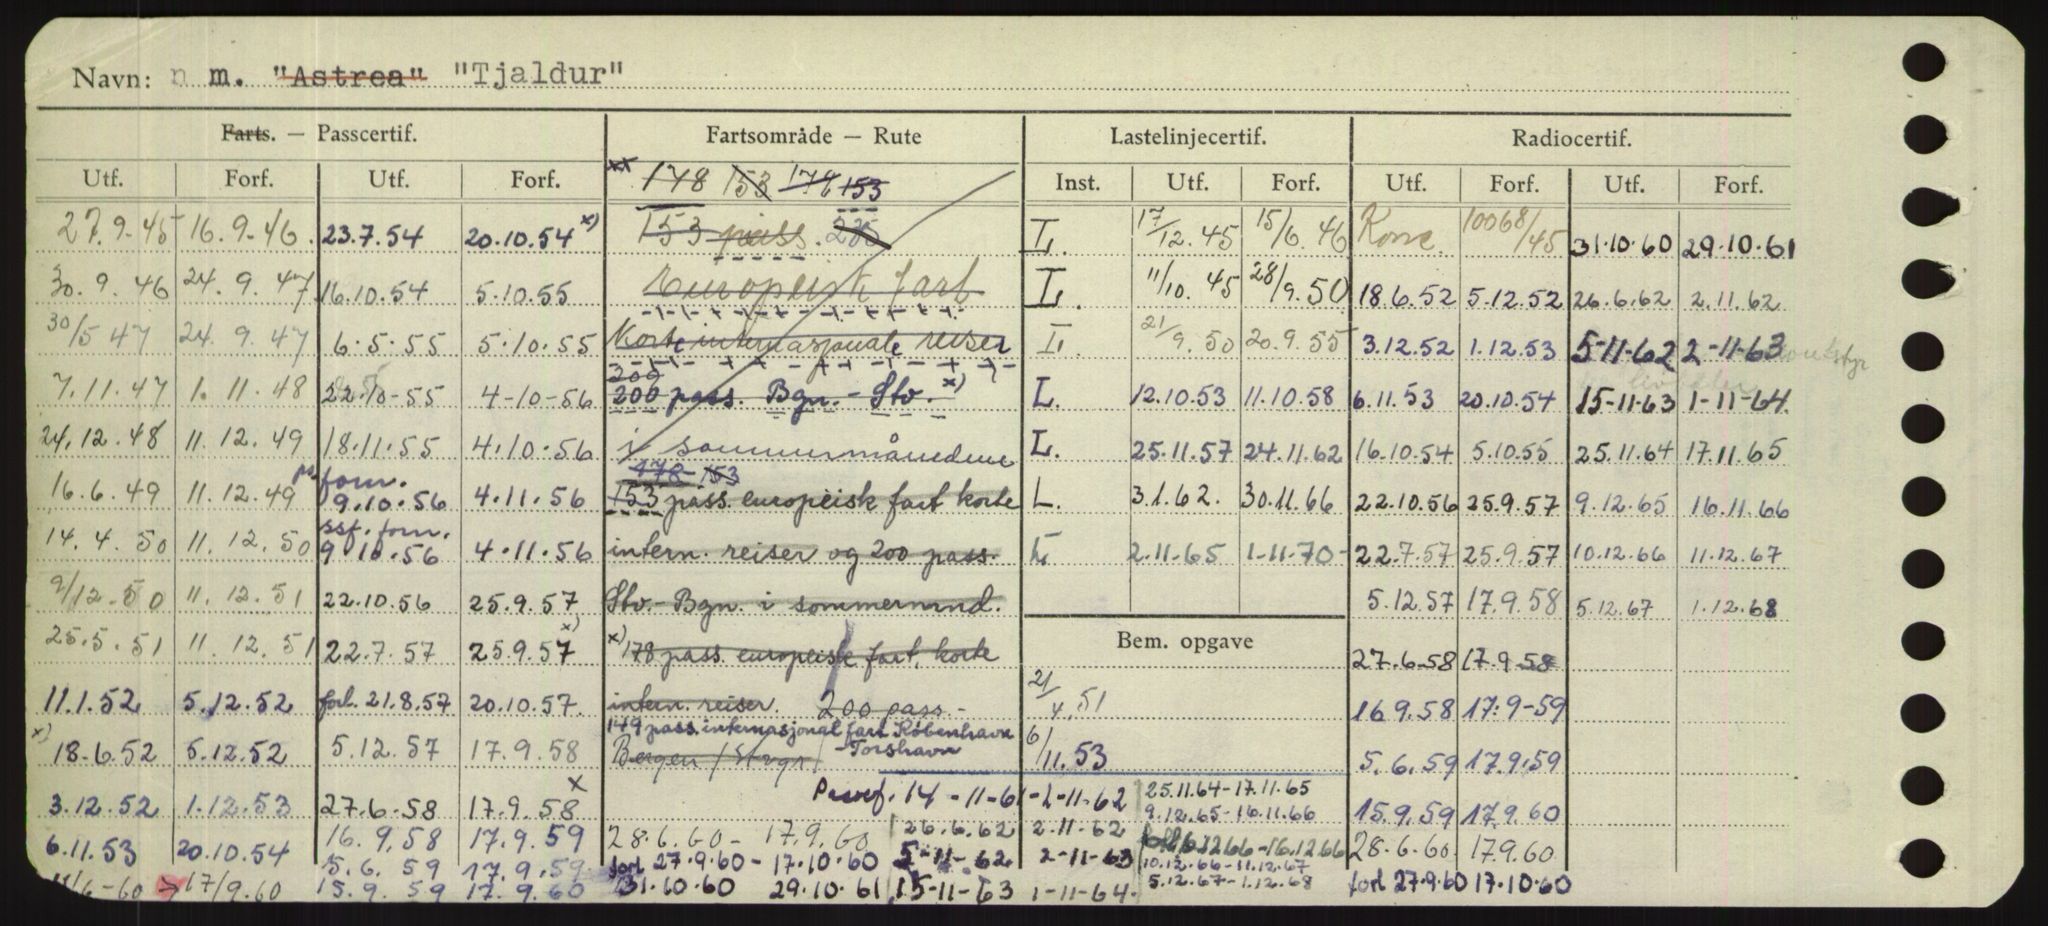 Navn: m. "Astrea" "Tjaldur"
Farts. — Passcertif. Fartsområde — Rute Lastelinjecertif. Radiocertif.
Utf. Forf. Utf. Forf. xx 178 153 178 153 Inst. Utf. Forf. Utf. Forf. Utf. Forf.
27.9.45 16.9.46. 23.7.54 20.10.54 x) 153 pass. L. 17/12.45 15/6.46 Konv. 10068/45 31.10.60 29.10.61
30.9.46 24.9.47 16.10.54 5.10.55 Europeisk fart L. 11/10.45 28/9.50 18.6.52 5.12.52 26.6.62 2.11.62
30/5 47 24.9.47 6.5.55 5.10.55 Korte internasjonale reiser L. 21/9.50 20.9.55 3.12.52 1.12.53 5-11-62 2-11-63
7.11.47 1.11.48 22.10-55 4-10-56 200 200 pass. Bgn. - Stv. x) L. 12.10.53 11.10.58 6.11.53 20.10.54 15-11-63 1-11-64.
24.12.48 11.12.49 18.11.55 4.10.56 i sommermånedene L. 25.11.57 24.11.62 16.10.54 5.10.55 25.11.64 17.11.65
178 153
16.6.49 11.12.49 forn. 9.10.56 4.11.56 153 pass. europeisk fart korte L. 3.1.62. 30.11.66 22.10.56 25.9.57 9.12.65 16.11.66
14.4.50 11.12.50 ssf. forn. 9.10.56 4.11.56 intern. reiser og 200 pass. L 2.11.65 1-11-70- 22.7.57 25.9.57 10.12.66 11.12.67
9/12.50 11.12.51 22.10.56 25.9.57 Stv. - Bgn. i sommermnd. 5.12.57 17.9.58 5.12.67 1.12.68
25.5.51 11.12.51 22.7.57 25.9.57 x) x) 178 pass. europeisk fart, korte Bem. opgave 27.6.58 17.9.58
11.1.52 5.12.52 forl. 21.8.57 20.10.57. intern. reiser. 200 pass - 21/4.51 16.9.58 17.9-59
149 pass. internasjonal fart København - Torshavn
x) 18.6.52 5.12.52 5.12.57 17.9.58 Bergen / Stvgr 6/11.53 5.6.59 17.9.59
3.12.52 1.12.53 27.6.58 17.9.58 x 14-11-61 - 2-11-62 25.11.64-17.11.65 15.9.59 17.9.60
9.12.65-16.11.66
6.11.53 20.10.54 16.9.58 17.9.59 28.6.60 - 17.9.60 26.6.62 2.11-62 28.6.60 17.9.60
15.6.59 17.9.59 forl 27.9.60 - 17.10.60 5-11-62 2-11-63 10.12.66-11.12.67
17/9.60 15.9.59 17.9.60 31.10.60 29.10.61 15-11-63 1-11-64. 5.12.67-1.12.68 forl 27.9.60 17.10.60